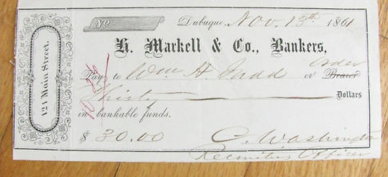 No. Dubuque, Nov. 13th 1861
H. Markell & Co., Bankers,
Pay to Wm H Judd or Order Bearer
Thirty Dollars
in bankable funds.
$ 30.00 C. Washington
Recruiting Officer
121 Main Street.